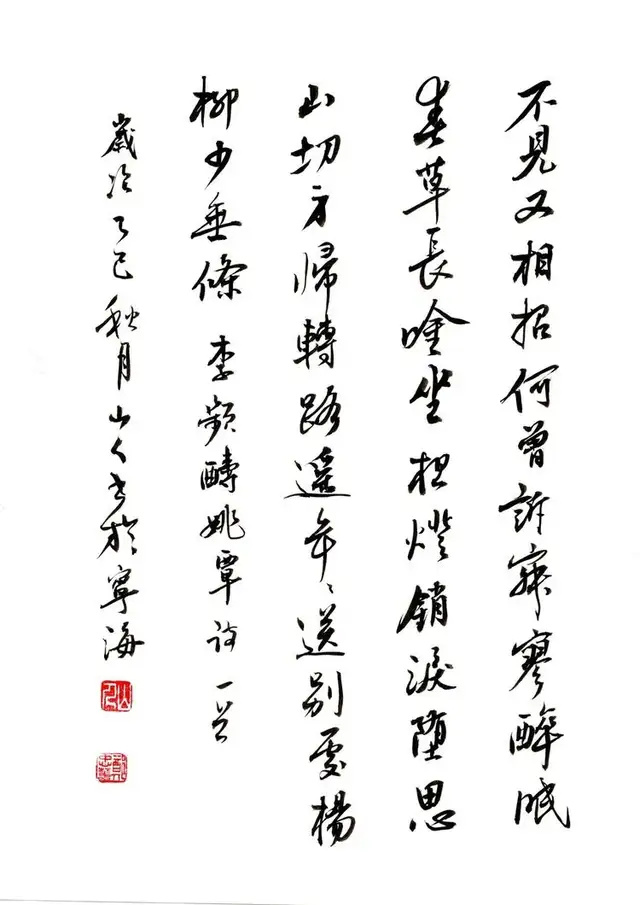 不見又相招何曾訴寂寥醉眠
春草長唫坐燈銷淚墮思
山切方歸轉路遥年〻送別處楊
柳少垂條 李頻醻姚覃詩一首
歲次乙巳秋月山人書於寧海
山人